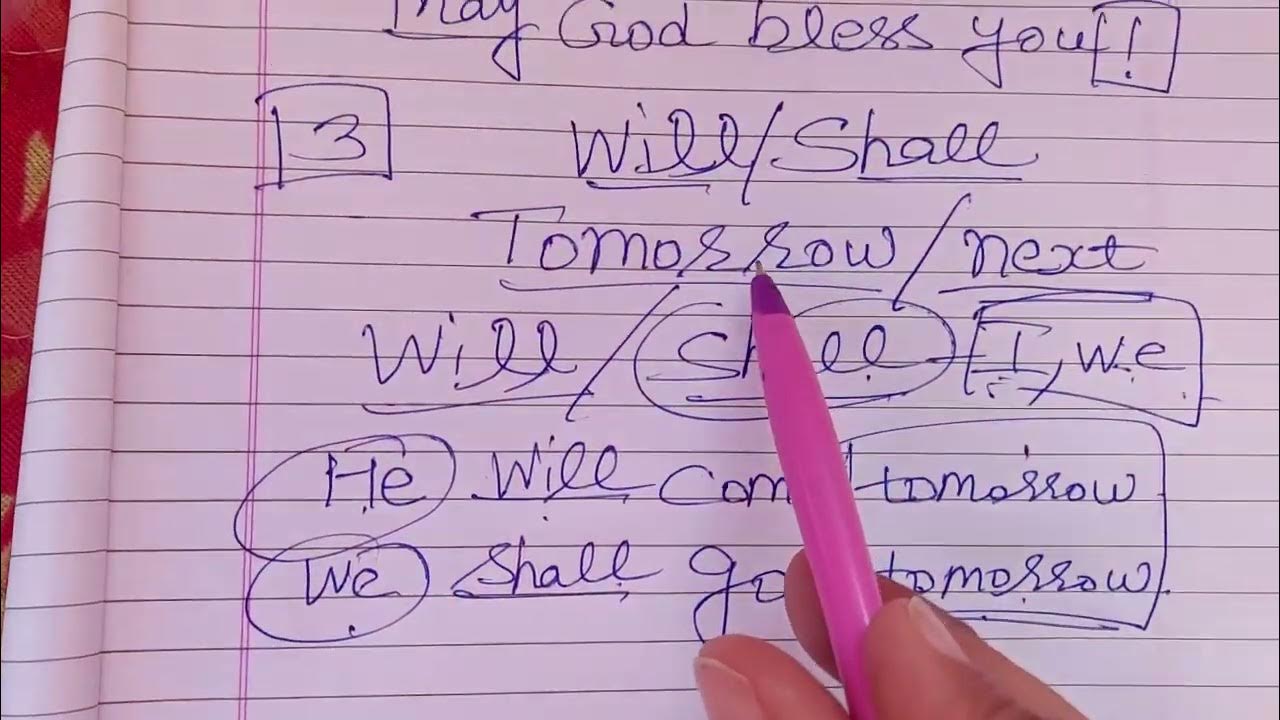 May God bless you !
3 Will/Shall
Tomorrow/next
Will/Shall I, we
He Will come tomorrow
We Shall go tomorrow.